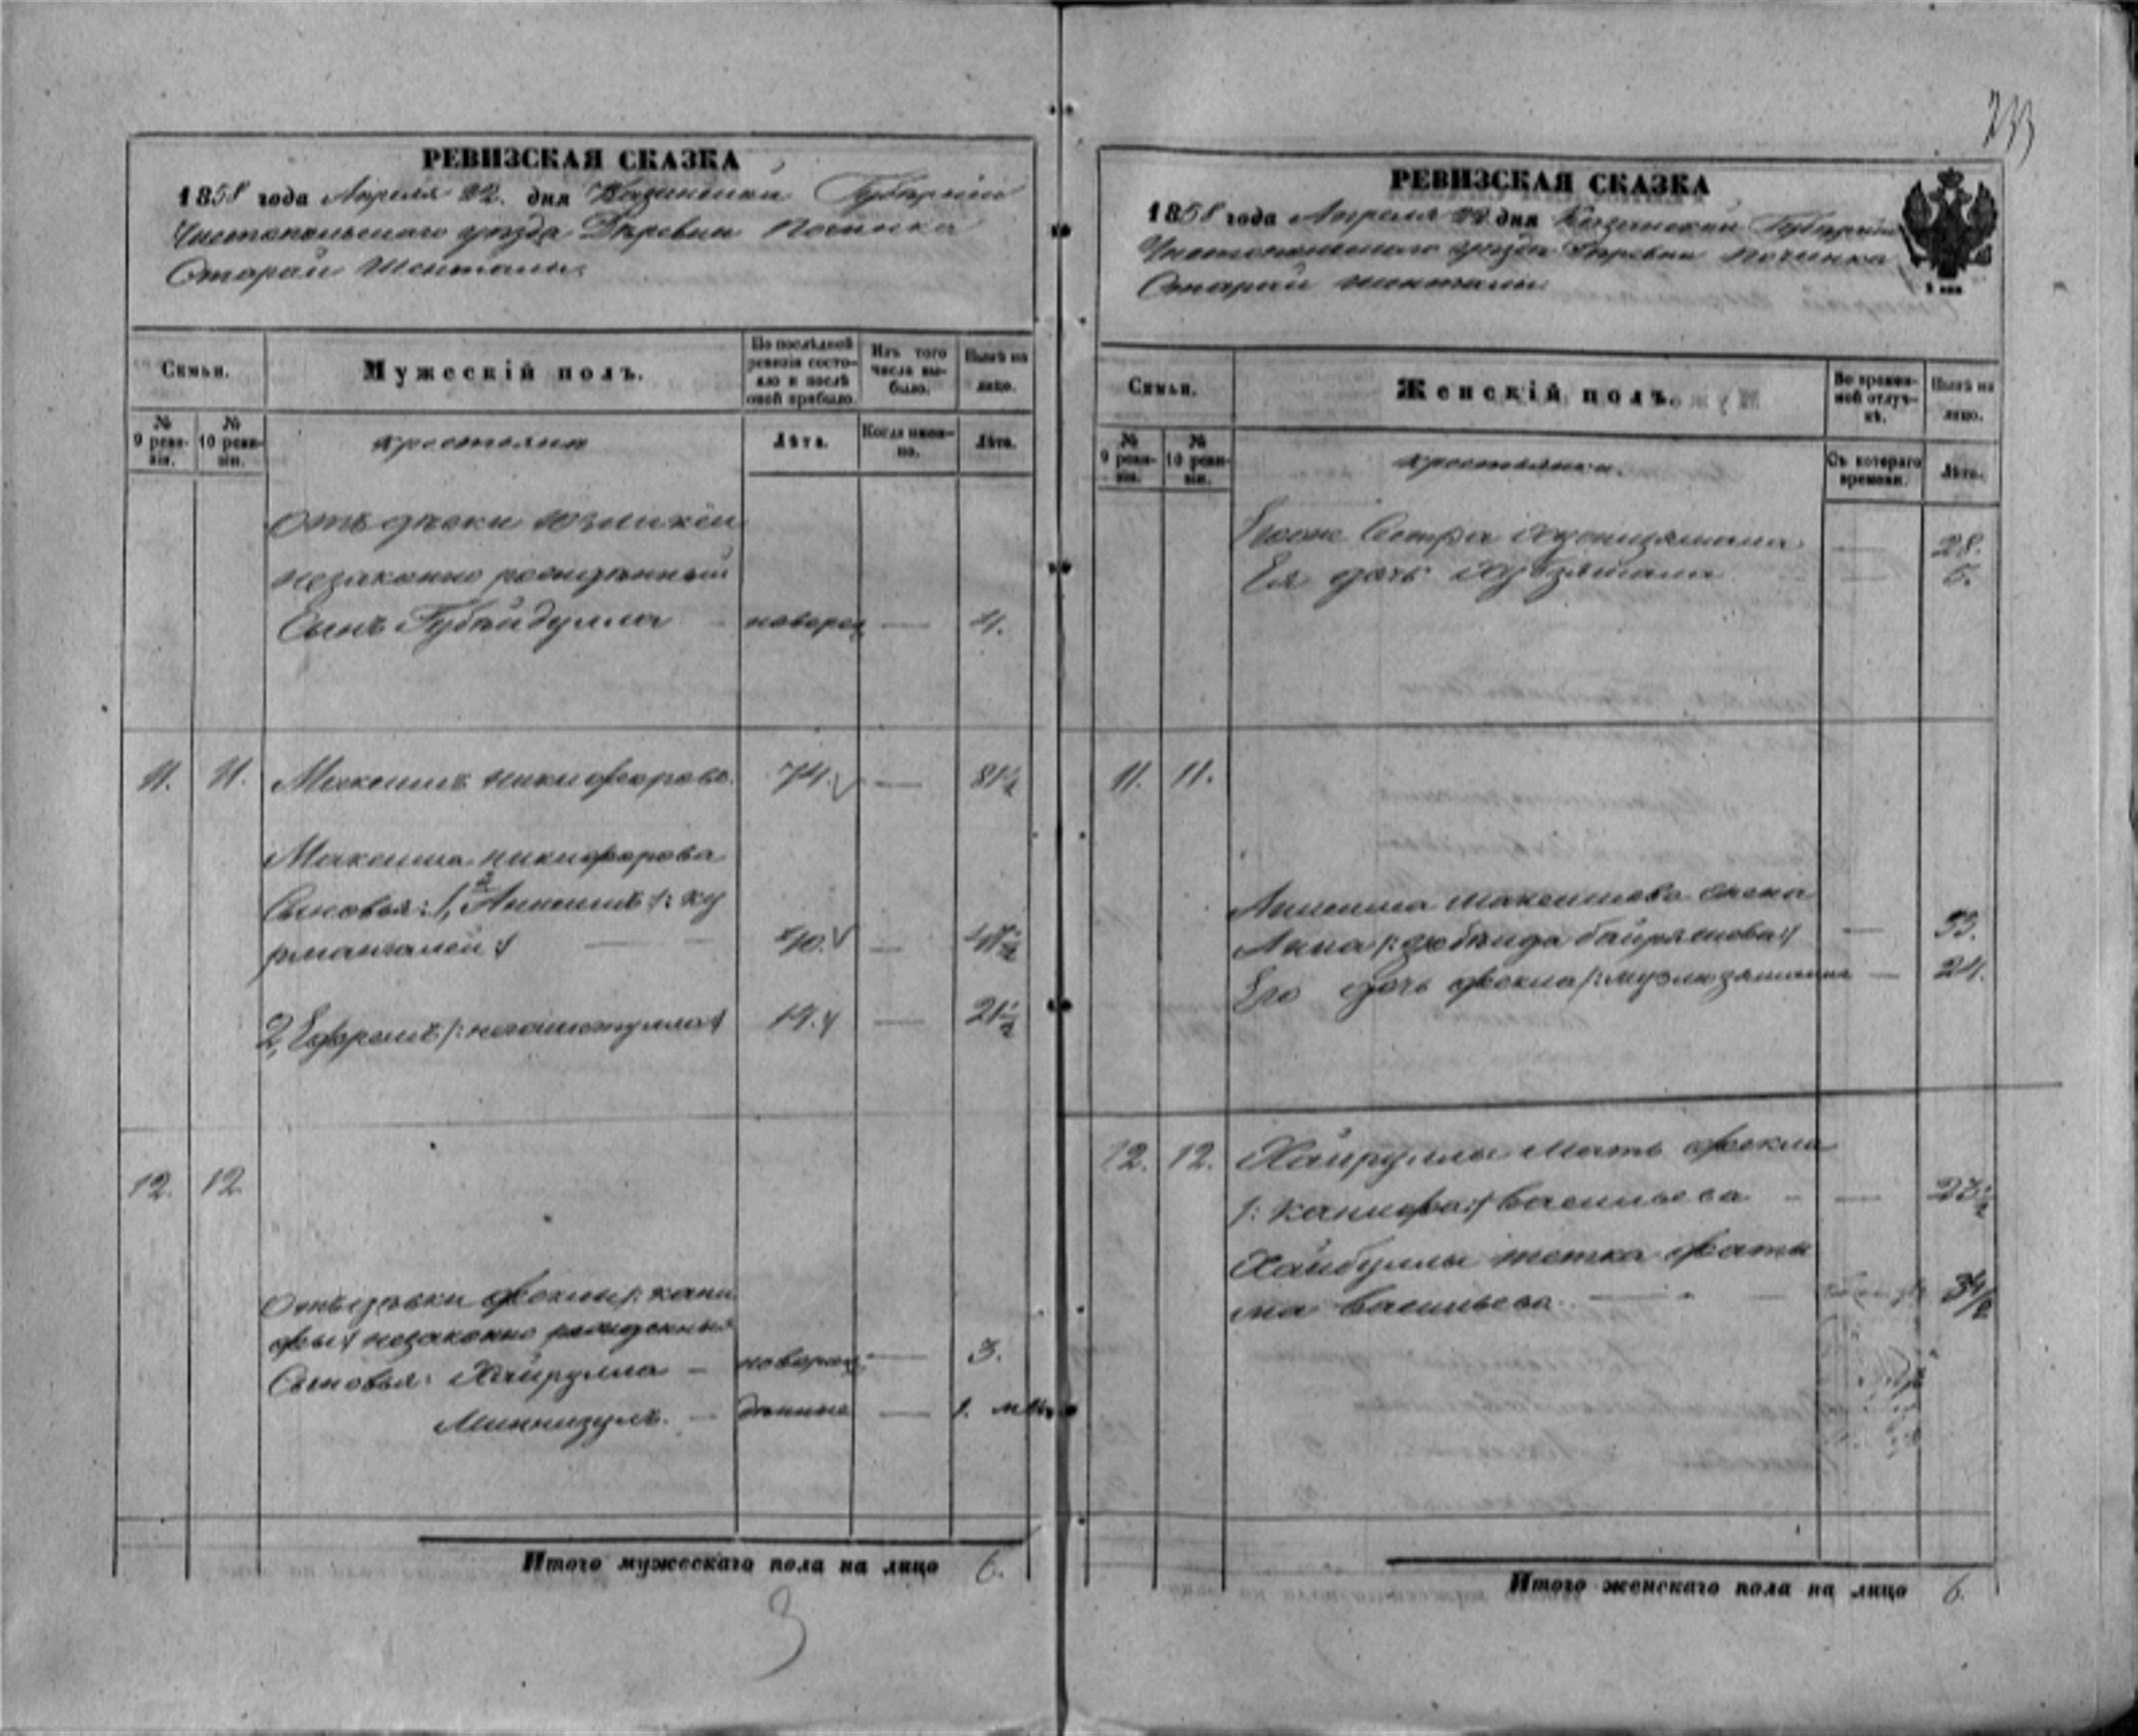 233
РЕВИЗСКАЯ СКАЗКА
1858 года Апреля 22. дня Казанской Губерніи
Чистопольскаго уезда Деревни Починка
Старой Шенталы.
Семьи.
Мужескій полъ.
По послѣдней ревизіи состояло и послѣ оной прибыло.
Изъ того числа выбыло.
Нынѣ на лицо.
№ 9 ревизіи.
№ 10 ревизіи.
крестьяне
Лѣта.
Когда именно.
Лѣта.
Отъ девки
незаконно рожденный
Сынъ Губейдулла новорож — 4.
11. 11. Максимъ никифоровъ. 74. — 81½
Максима никифорова
Сыновья: 1, Анисимъ /: ку
рмангалей :/ 40. —
2, Ефремъ — 21½
12. 12.
Отъ девки феклы /: кани
фы :/ незаконно рожденныя
Сыновья: Хайрулла — новорож — 3.
Миннигулъ. — денные — 1. мѣс
Итого мужескаго пола на лицо 6.
3
РЕВИЗСКАЯ СКАЗКА
1858 года Апреля 22 дня Казанской Губерніи
Чистопольскаго уезда Деревни Починка
Старой шенталы
Семьи.
Женскій полъ.
Во временной отлучкѣ.
Нынѣ на лицо.
№ 9 ревизіи.
№ 10 ревизіи.
крестьянки.
Съ котораго времени.
Лѣта.
Сестра — 28.
Ея дочь —
11. 11.
Анисима максимова жена
Анна — 33.
Его дочь фекла — 21.
12. 12. Хайруллы мать фекла
/: канифа :/ васильева — 23½
Хайбуллы тетка фати
ма васильева —
Итого женскаго пола на лицо 6.